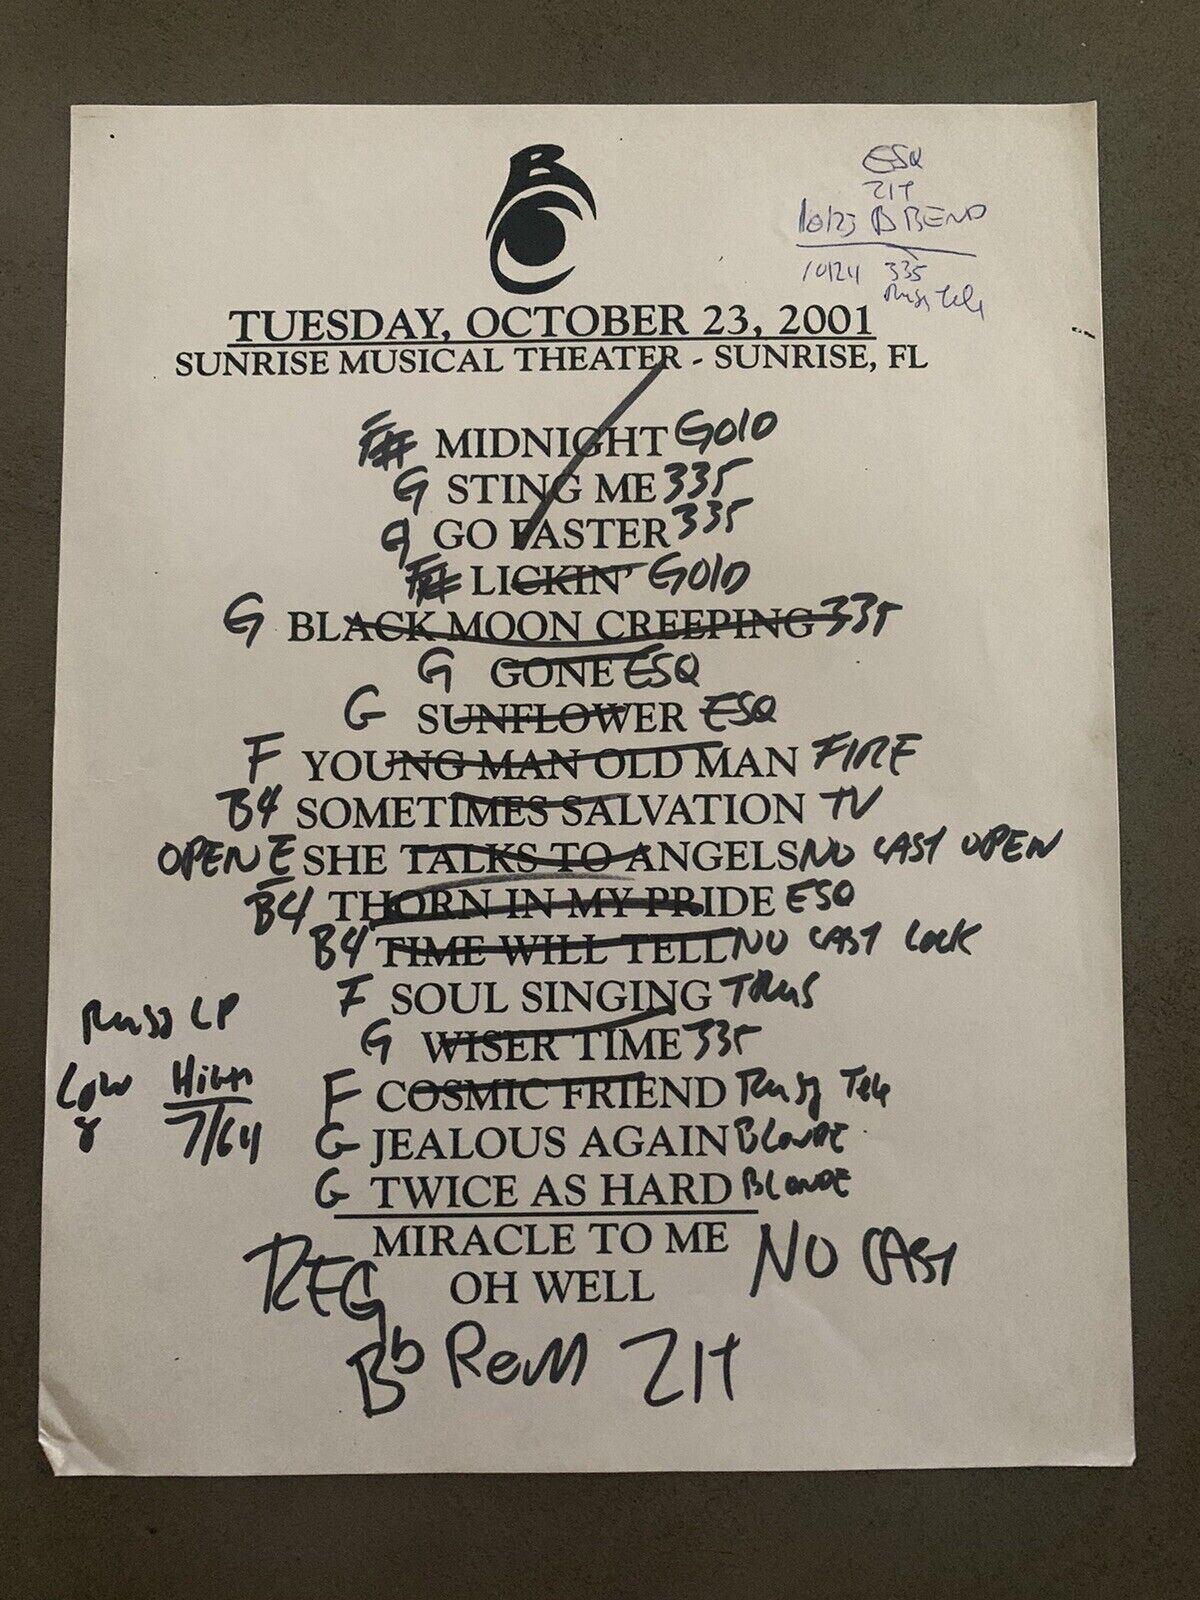 B
ESQ
ZIT
10/23 B BEND
10/24 335
Russ Tele
TUESDAY, OCTOBER 23, 2001
SUNRISE MUSICAL THEATER - SUNRISE, FL
F# MIDNIGHT GOLD
G STING ME 335
G GO FASTER 335
F# LICKIN' GOLD
G BLACK MOON CREEPING 335
G GONE ESQ
G SUNFLOWER ESQ
F YOUNG MAN OLD MAN FIRE
B4 SOMETIMES SALVATION TV
OPEN E SHE TALKS TO ANGELS NO CAST OPEN
B4 THORN IN MY PRIDE ESQ
B4 TIME WILL TELL NO CAST LOCK
F SOUL SINGING TRUS
G WISER TIME 335
F COSMIC FRIEND Russ Tele
G JEALOUS AGAIN BLONDE
G TWICE AS HARD BLONDE
Russ LP
LOW HIGH
8 7/64
MIRACLE TO ME NO CAST
REG OH WELL
Bb Rem ZIT